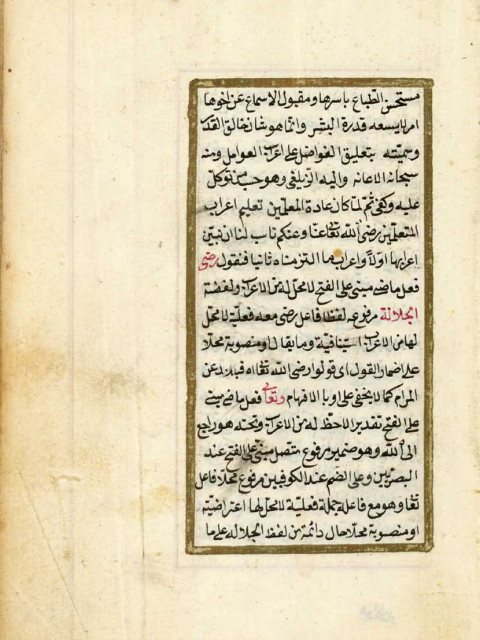 مستحسن الطباع باسرها ومقبول الاسماع عن اخرها
امر لا يسعه قدرة البشر وانما هو شان خالق القدر
وسميته بتعليق الفواضل على اعراب العوامل ومنه
سبحانه الاعانة واليه الزلفى وهو حسب من توكل
عليه وكفى ثم لما كان عادة المعلمين تعليم اعراب
المتعلمين رضى الله تعالى عنا وعنكم ناسب لنا ان نبين
اعرابها اولا واعراب ما التزمناه ثانيا فنقول رضى
فعل ماض مبنى على الفتح لا محل له من الاعراب ولفظة
الجلالة مرفوعه لفظا فاعل رضى معه فعلية لا محل
لها من الاعراب استينافية وما يقال او منصوبة محلا
على اضمار القول اى قولوا رضى الله تعالى اه فبعيد عن
المرام كما لا يخفى على اولى الافهام وتعالى فعل ماض مبنى
على الفتح تقديرا لاحظ له من الاعراب وتحته هو راجع
الى الله وهو ضمير مرفوع متصل مبنى على الفتح عند
البصريين وعلى الضم عند الكوفيين مرفوع محلا فاعل
تعالى وهو مع فاعله جملة فعلية لا محل لها اعتراضية
او منصوبة محلا حال دائمة من لفظ الجلالة على ما